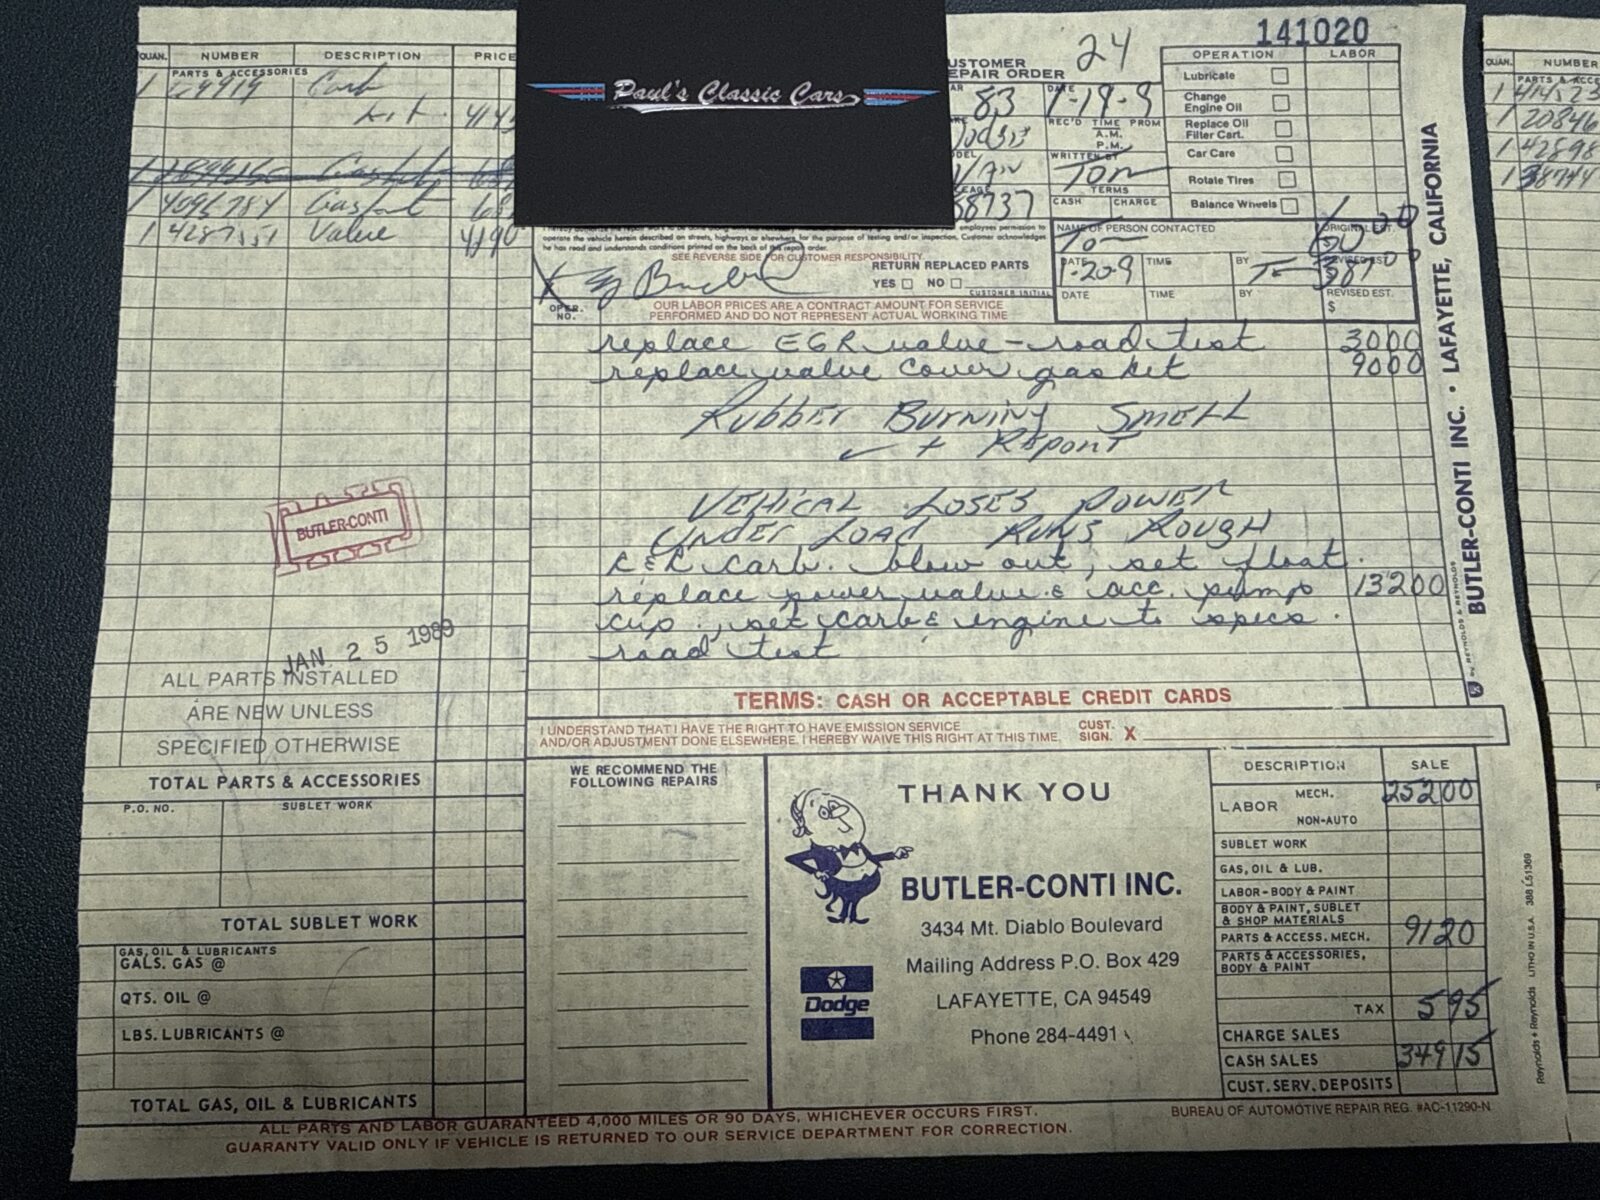 141020
QUAN. NUMBER DESCRIPTION PRICE
PARTS & ACCESSORIES
1 Carb
kit
1 Gasket
1 4095784 Gasket
1 4287551 Value 4190
Paul's Classic Cars
CUSTOMER
REPAIR ORDER
24
83
DATE
1-19-9
REC'D TIME PROM
A.M.
P.M.
WRITTEN BY
VAN Tom
TERMS
CASH CHARGE
58737
OPERATION LABOR
Lubricate
Change
Engine Oil
Replace Oil
Filter Cart.
Car Care
Rotate Tires
Balance Wheels
employees permission to
operate the vehicle herein described on streets, highways or elsewhere, for the purpose of testing and/or inspection. Customer acknowledges
he has read and understands conditions printed on the back of this repair order.
SEE REVERSE SIDE FOR CUSTOMER RESPONSIBILITY
RETURN REPLACED PARTS
YES NO
CUSTOMER INITIAL
NAME OF PERSON CONTACTED ORIGINAL EST.
DATE TIME BY REVISED EST.
1-20-9
DATE TIME BY REVISED EST.
$
X
OPER.
NO.
OUR LABOR PRICES ARE A CONTRACT AMOUNT FOR SERVICE
PERFORMED AND DO NOT REPRESENT ACTUAL WORKING TIME
replace EGR value - road test 3000
replace value cover gasket 9000
RUBBER BURNING SMELL
✓ + REPORT
VEHICAL LOSES POWER
UNDER LOAD RUNS ROUGH
R&R carb. blow out, set float.
replace power value & acc. pump 13200
cup., set carb & engine to specs.
road test
BUTLER-CONTI
JAN. 25 1989
ALL PARTS INSTALLED
ARE NEW UNLESS
SPECIFIED OTHERWISE
TOTAL PARTS & ACCESSORIES
P.O. NO. SUBLET WORK
TOTAL SUBLET WORK
GAS, OIL & LUBRICANTS
GALS. GAS @
QTS. OIL @
LBS. LUBRICANTS @
TOTAL GAS, OIL & LUBRICANTS
TERMS: CASH OR ACCEPTABLE CREDIT CARDS
I UNDERSTAND THAT I HAVE THE RIGHT TO HAVE EMISSION SERVICE
AND/OR ADJUSTMENT DONE ELSEWHERE. I HEREBY WAIVE THIS RIGHT AT THIS TIME.
CUST.
SIGN. X
WE RECOMMEND THE
FOLLOWING REPAIRS
THANK YOU
BUTLER-CONTI INC.
3434 Mt. Diablo Boulevard
Mailing Address P.O. Box 429
LAFAYETTE, CA 94549
Phone 284-4491
Dodge
DESCRIPTION SALE
LABOR MECH. 25200
NON-AUTO
SUBLET WORK
GAS, OIL & LUB.
LABOR-BODY & PAINT
BODY & PAINT, SUBLET
& SHOP MATERIALS
PARTS & ACCESS. MECH. 9120
PARTS & ACCESSORIES,
BODY & PAINT
TAX 595
CHARGE SALES
CASH SALES 34915
CUST. SERV. DEPOSITS
ALL PARTS AND LABOR GUARANTEED 4,000 MILES OR 90 DAYS, WHICHEVER OCCURS FIRST.
GUARANTY VALID ONLY IF VEHICLE IS RETURNED TO OUR SERVICE DEPARTMENT FOR CORRECTION.
BUREAU OF AUTOMOTIVE REPAIR REG. #AC-11290-N
BUTLER-CONTI INC. • LAFAYETTE, CALIFORNIA
by REYNOLDS & REYNOLDS
Reynolds + Reynolds LITHO IN U.S.A. 388 L51369
QUAN. NUMBER
PARTS & ACCE
1 20846
1 42898